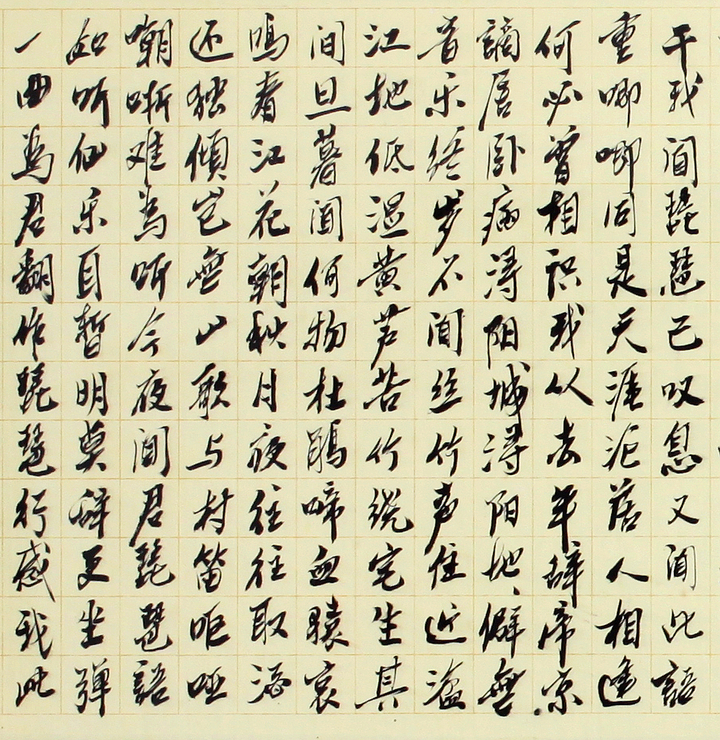 干我闻琵琶已叹息又闻此語
重唧唧同是天涯沦落人相逢
何必曾相识我从去年辞帝京
謫居卧病浔阳城浔阳地僻無
音乐终岁不闻丝竹声住近湓
江地低湿黄芦苦竹绕宅生其
间旦暮闻何物杜鹃啼血猿哀
鸣春江花朝秋月夜往往取酒
还独傾岂無山歌与村笛呕哑
嘲哳难為听今夜闻君琵琶語
如听仙乐耳暂明莫辞更坐弹
一曲為君翻作琵琶行感我此